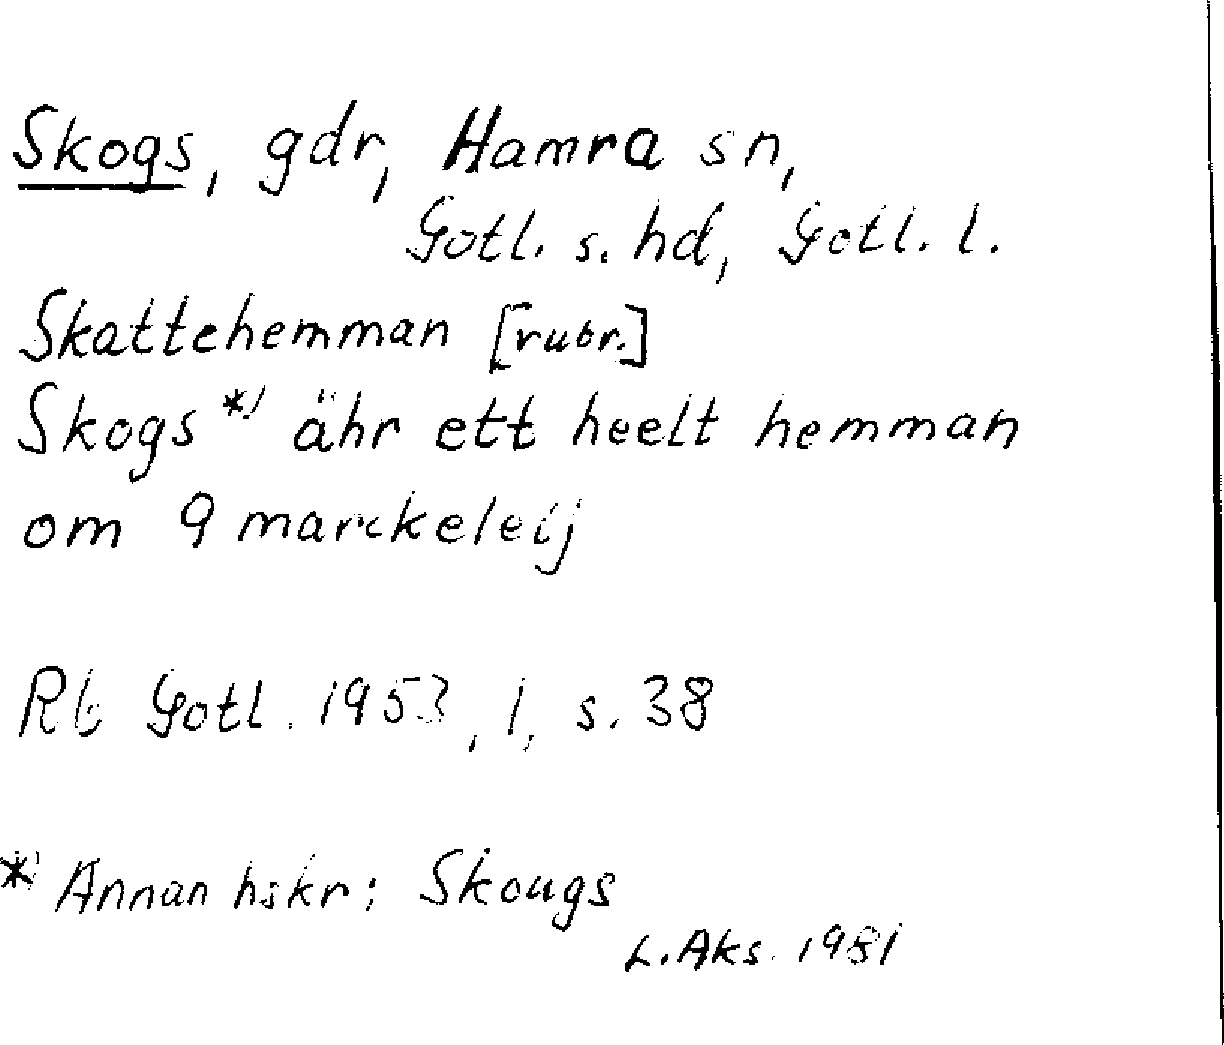 Skogs, gdr, Hamra sn,
Gotl. s. hd, Gotl. l.
Skattehemman [rubr.]
Skogs *) ähr ett heelt hemman
om 9 marckeleij
Rb Gotl. 1953, 1, s. 38
*) Annan hskr: Skougs
L. Aks. 1981